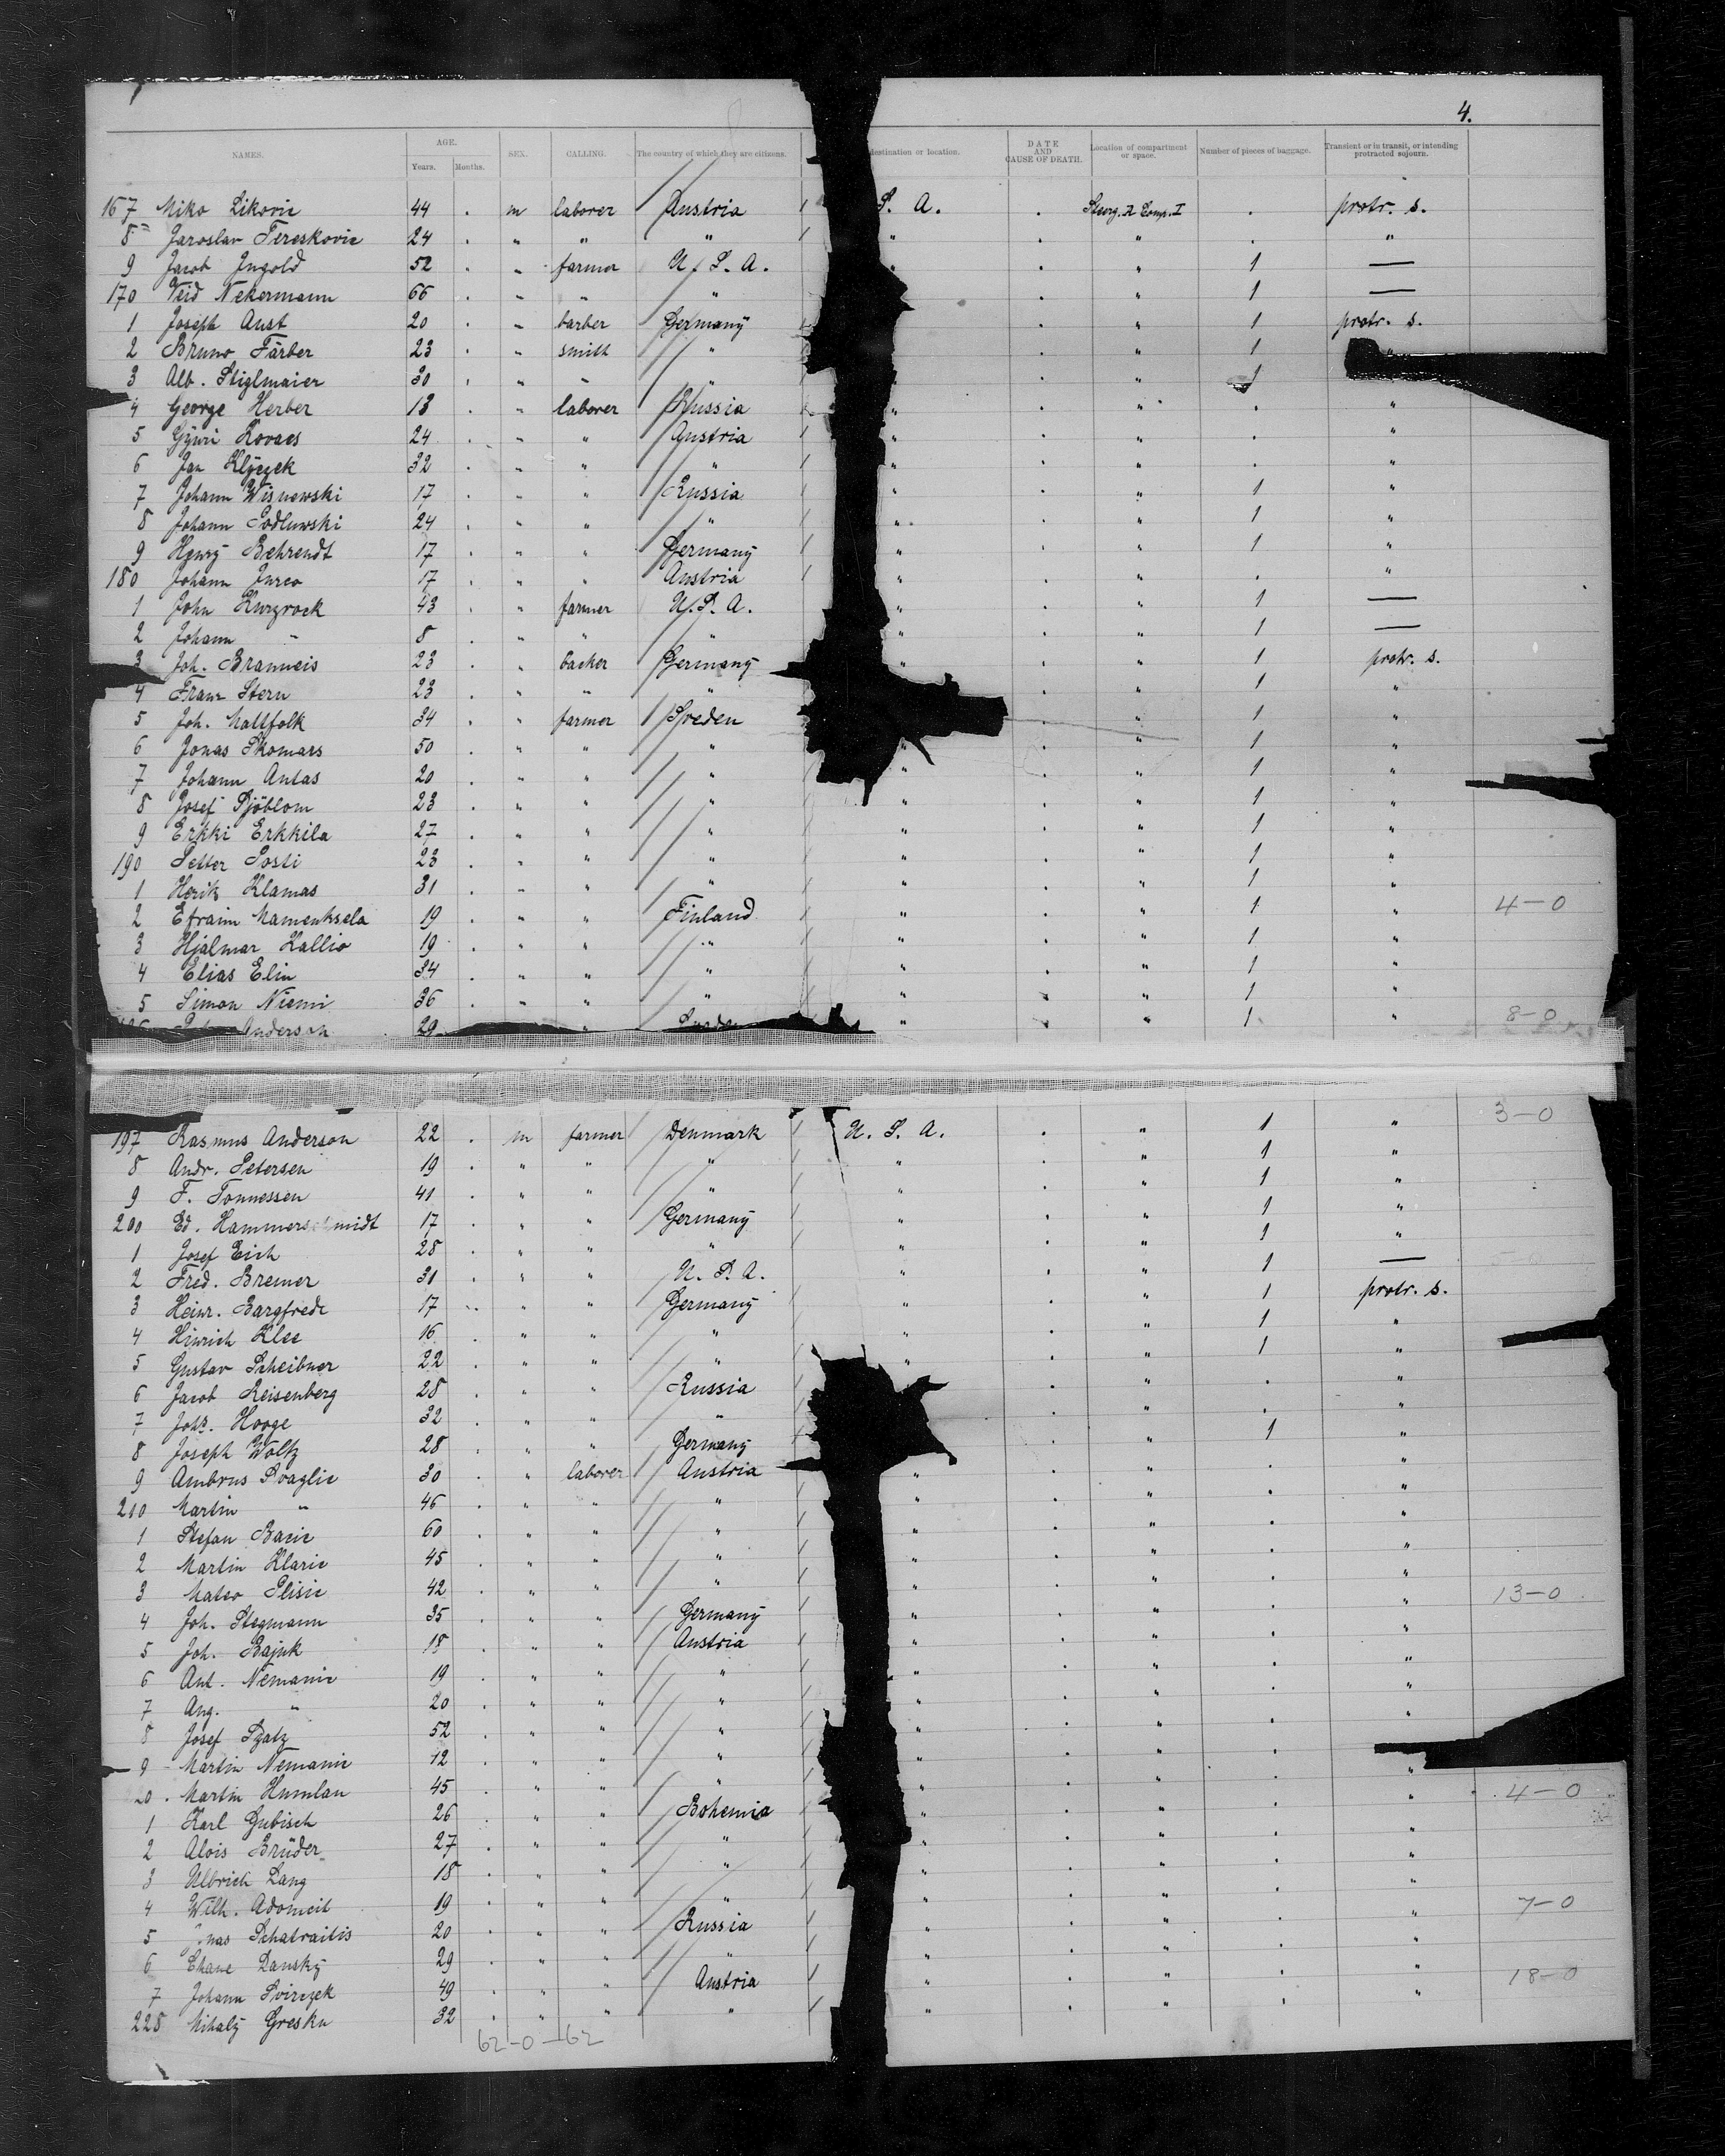 4.
NAMES. AGE. Years. Months. SEX. CALLING. The country of which they are citizens. destination or location. DATE AND CAUSE OF DEATH. Location of compartment or space. Number of pieces of baggage. Transient or in transit, or intending protracted sojourn.
167 Miko Likovic 44 . m laborer Austria S. A. . Steerg. A Comp. I . protr. s.
8 Jaroslav Tereskovic 24 . " " " " . " . "
9 Jacob Ingold 52 . " farmer U. S. A. . " 1 —
170 Veid Nekermann 66 . " " " . " 1 —
1 Joseph Aust 20 . " barber Germany . " 1 protr. s.
2 Bruno Färber 23 . " smith " . " 1 "
3 Alb. Stiglmaier 30 . " " " . " 1
4 George Herber 13 . " laborer Russia " . " . "
5 Györi Kovacs 24 . " " Austria " . " . "
6 Jan Klyczek 32 . " " " " . " . "
7 Johann Wisnewski 17 . " " Russia " . " 1 "
8 Johann Podluwski 24 . " " " " . " 1 "
9 Henry Behrendt 17 . " " Germany " . " 1 "
180 Johann Jurco 17 . " " Austria " . " . "
1 John Kurzrock 43 . " farmer U. S. A. " . " 1 —
2 Johann " 8 . " " " " . " 1 —
3 Joh. Branneis 23 . " backer Germany " . " 1 protr. s.
4 Franz Stern 23 . " " " . " 1 "
5 Joh. Mattfolk 34 . " farmer Sreden . " 1 "
6 Jonas Skomars 50 . " " " " . " 1 "
7 Johann Antas 20 . " " " " . " 1 "
8 Josef Sjöblom 23 . " " " " . " 1 "
9 Erkki Erkkila 27 . " " " " . " 1 "
190 Petter Posti 23 . " " " " . " 1 "
1 Herik Klamas 31 . " " " " . " 1 "
2 Efraim Mamenksela 19 . " " Finland " . " 1 " 4-0
3 Hjalmar Kallio 19 . " " " " . " 1 "
4 Elias Elin 34 . " " " " . " 1 "
5 Simon Niemi 36 . " " " " . " 1 "
Anderson 29 " " . " 1 " 8-0
3-0
197 Rasmus Anderson 22 . m farmer Denmark U. S. A. . " 1 "
8 Andr. Petersen 19 . " " " " . " 1 "
9 F. Tonnessen 41 . " " " " . " 1 "
200 Ed. Hammerschmidt 17 . " " Germany " . " 1 "
1 Josef Eich 28 . " " " " . " 1 "
2 Fred. Bremer 31 . " " U. S. A. " . " 1 —
3 Heinr. Bargfrede 17 . " " Germany " . " 1 protr. s.
4 Hinrich Klee 16 . " " " " . " 1 "
5 Gustav Scheibner 22 . " " " " . " 1 "
6 Jacob Reisenberg 28 . " " Russia . " . "
7 Johs. Hooge 32 . " " " . " . "
8 Joseph Woltz 28 . " " Germany . " 1 "
9 Ambrus Svaglic 30 . " laborer Austria " . " . "
210 Martin " 46 . " " " " . " . "
1 Stefan Bacic 60 . " " " " . " . "
2 Martin Klaric 45 . " " " " . " . "
3 Mateo Plisic 42 . " " " " . " . " 13-0
4 Joh. Stegmann 35 . " " Germany " . " . "
5 Joh. Bajuk 18 . " " Austria " . " . "
6 Ant. Nemanic 19 . " " " " . " . "
7 Aug. " 20 . " " " " . " . "
8 Josef Szatz 52 . " " " " . " . "
9 Martin Nemanic 12 . " " " " . " . "
20 Martin Humlan 45 . " " " " . " . " 4-0
1 Karl Gubisch 26 . " " Bohemia " . " . "
2 Alois Brüder 27 . " " " " . " . "
3 Ulbrich Lang 18 . " " " " . " . "
4 Wilh. Adomeit 19 . " " " " . " . " 7-0
5 nas Schatraitis 20 . " " Russia " . " . "
6 Chane Dansky 29 . " " " " . " . "
7 Johann Svirczek 49 . " " Austria " . " . " 18-0
228 Mihaly Gresku 32 . " " " " . " . "
62-0-62